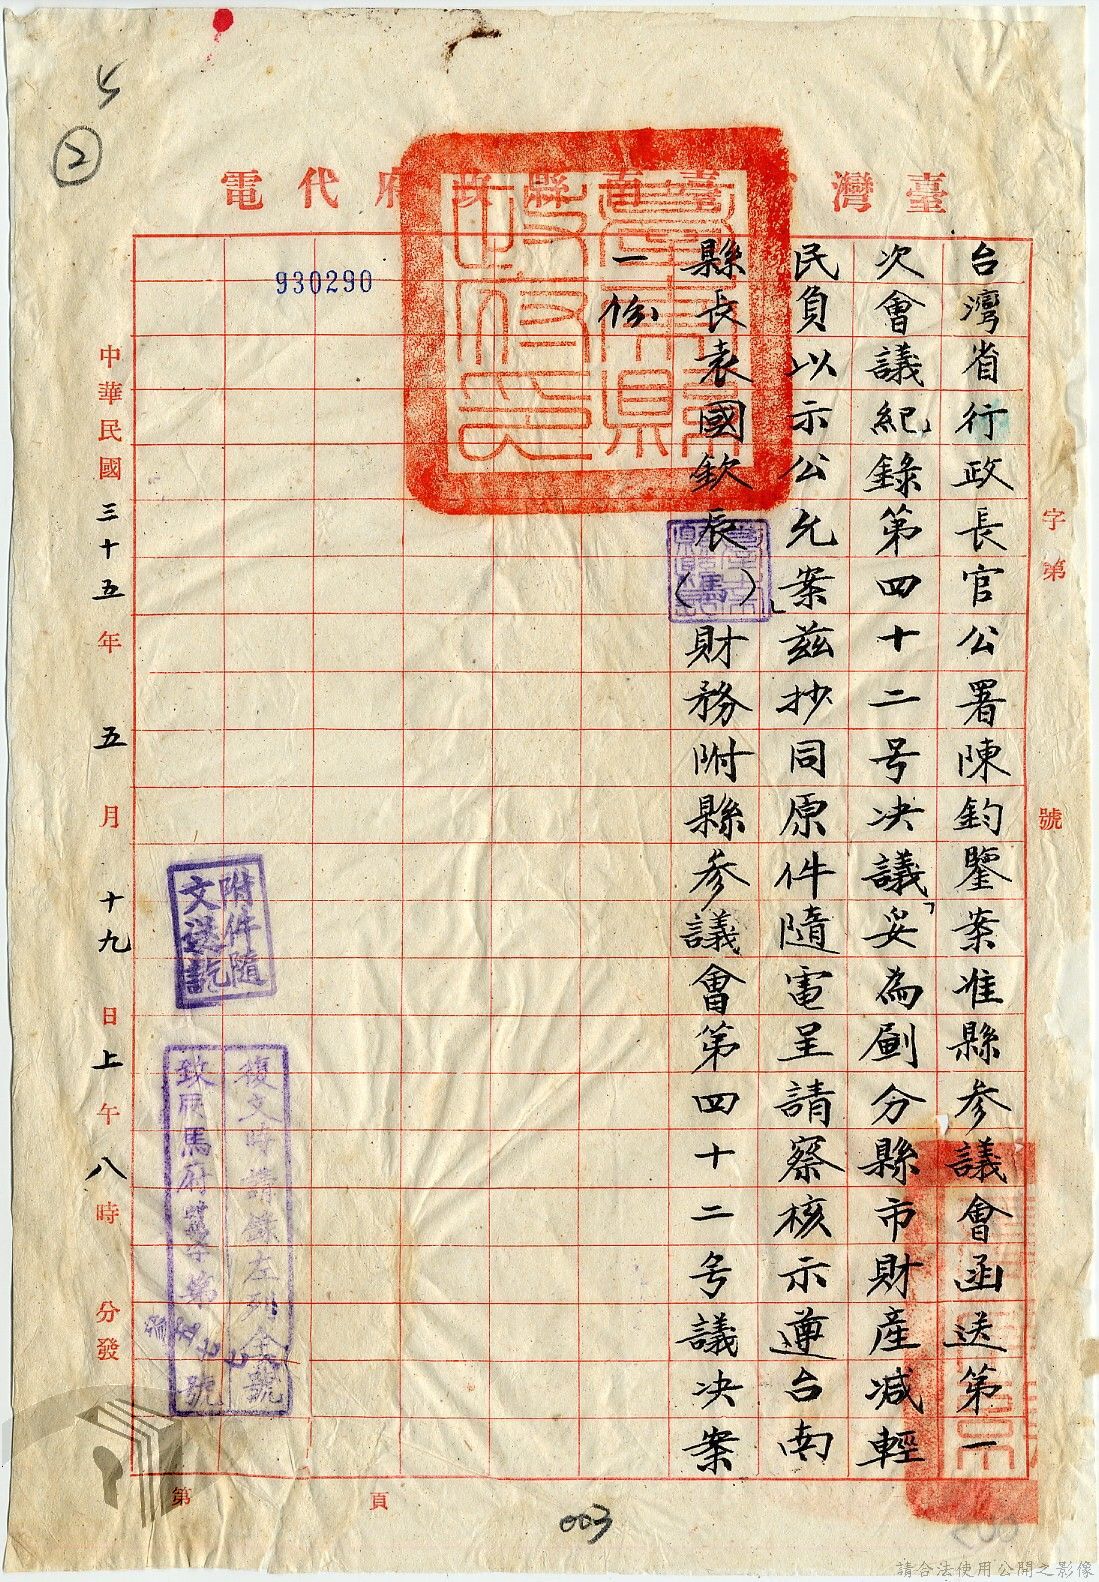 臺灣省臺南縣政府代電
字第 號
台灣省行政長官公署陳鈞鑒案准縣參議會函送第一
次會議紀錄第四十二号决議「妥為劃分縣市財產減輕
民負以示公允案」茲抄同原件隨電呈請察核示遵台南
縣長袁國欽辰(馬)財務附縣參議會第四十二号議决案
一份
930290
附件隨
文送訖
復文時請錄左列全號
致辰馬府 字第 號
中華民國三十五年五月十九日上午八時 分發
第 頁
②
003
請合法使用公開之影像